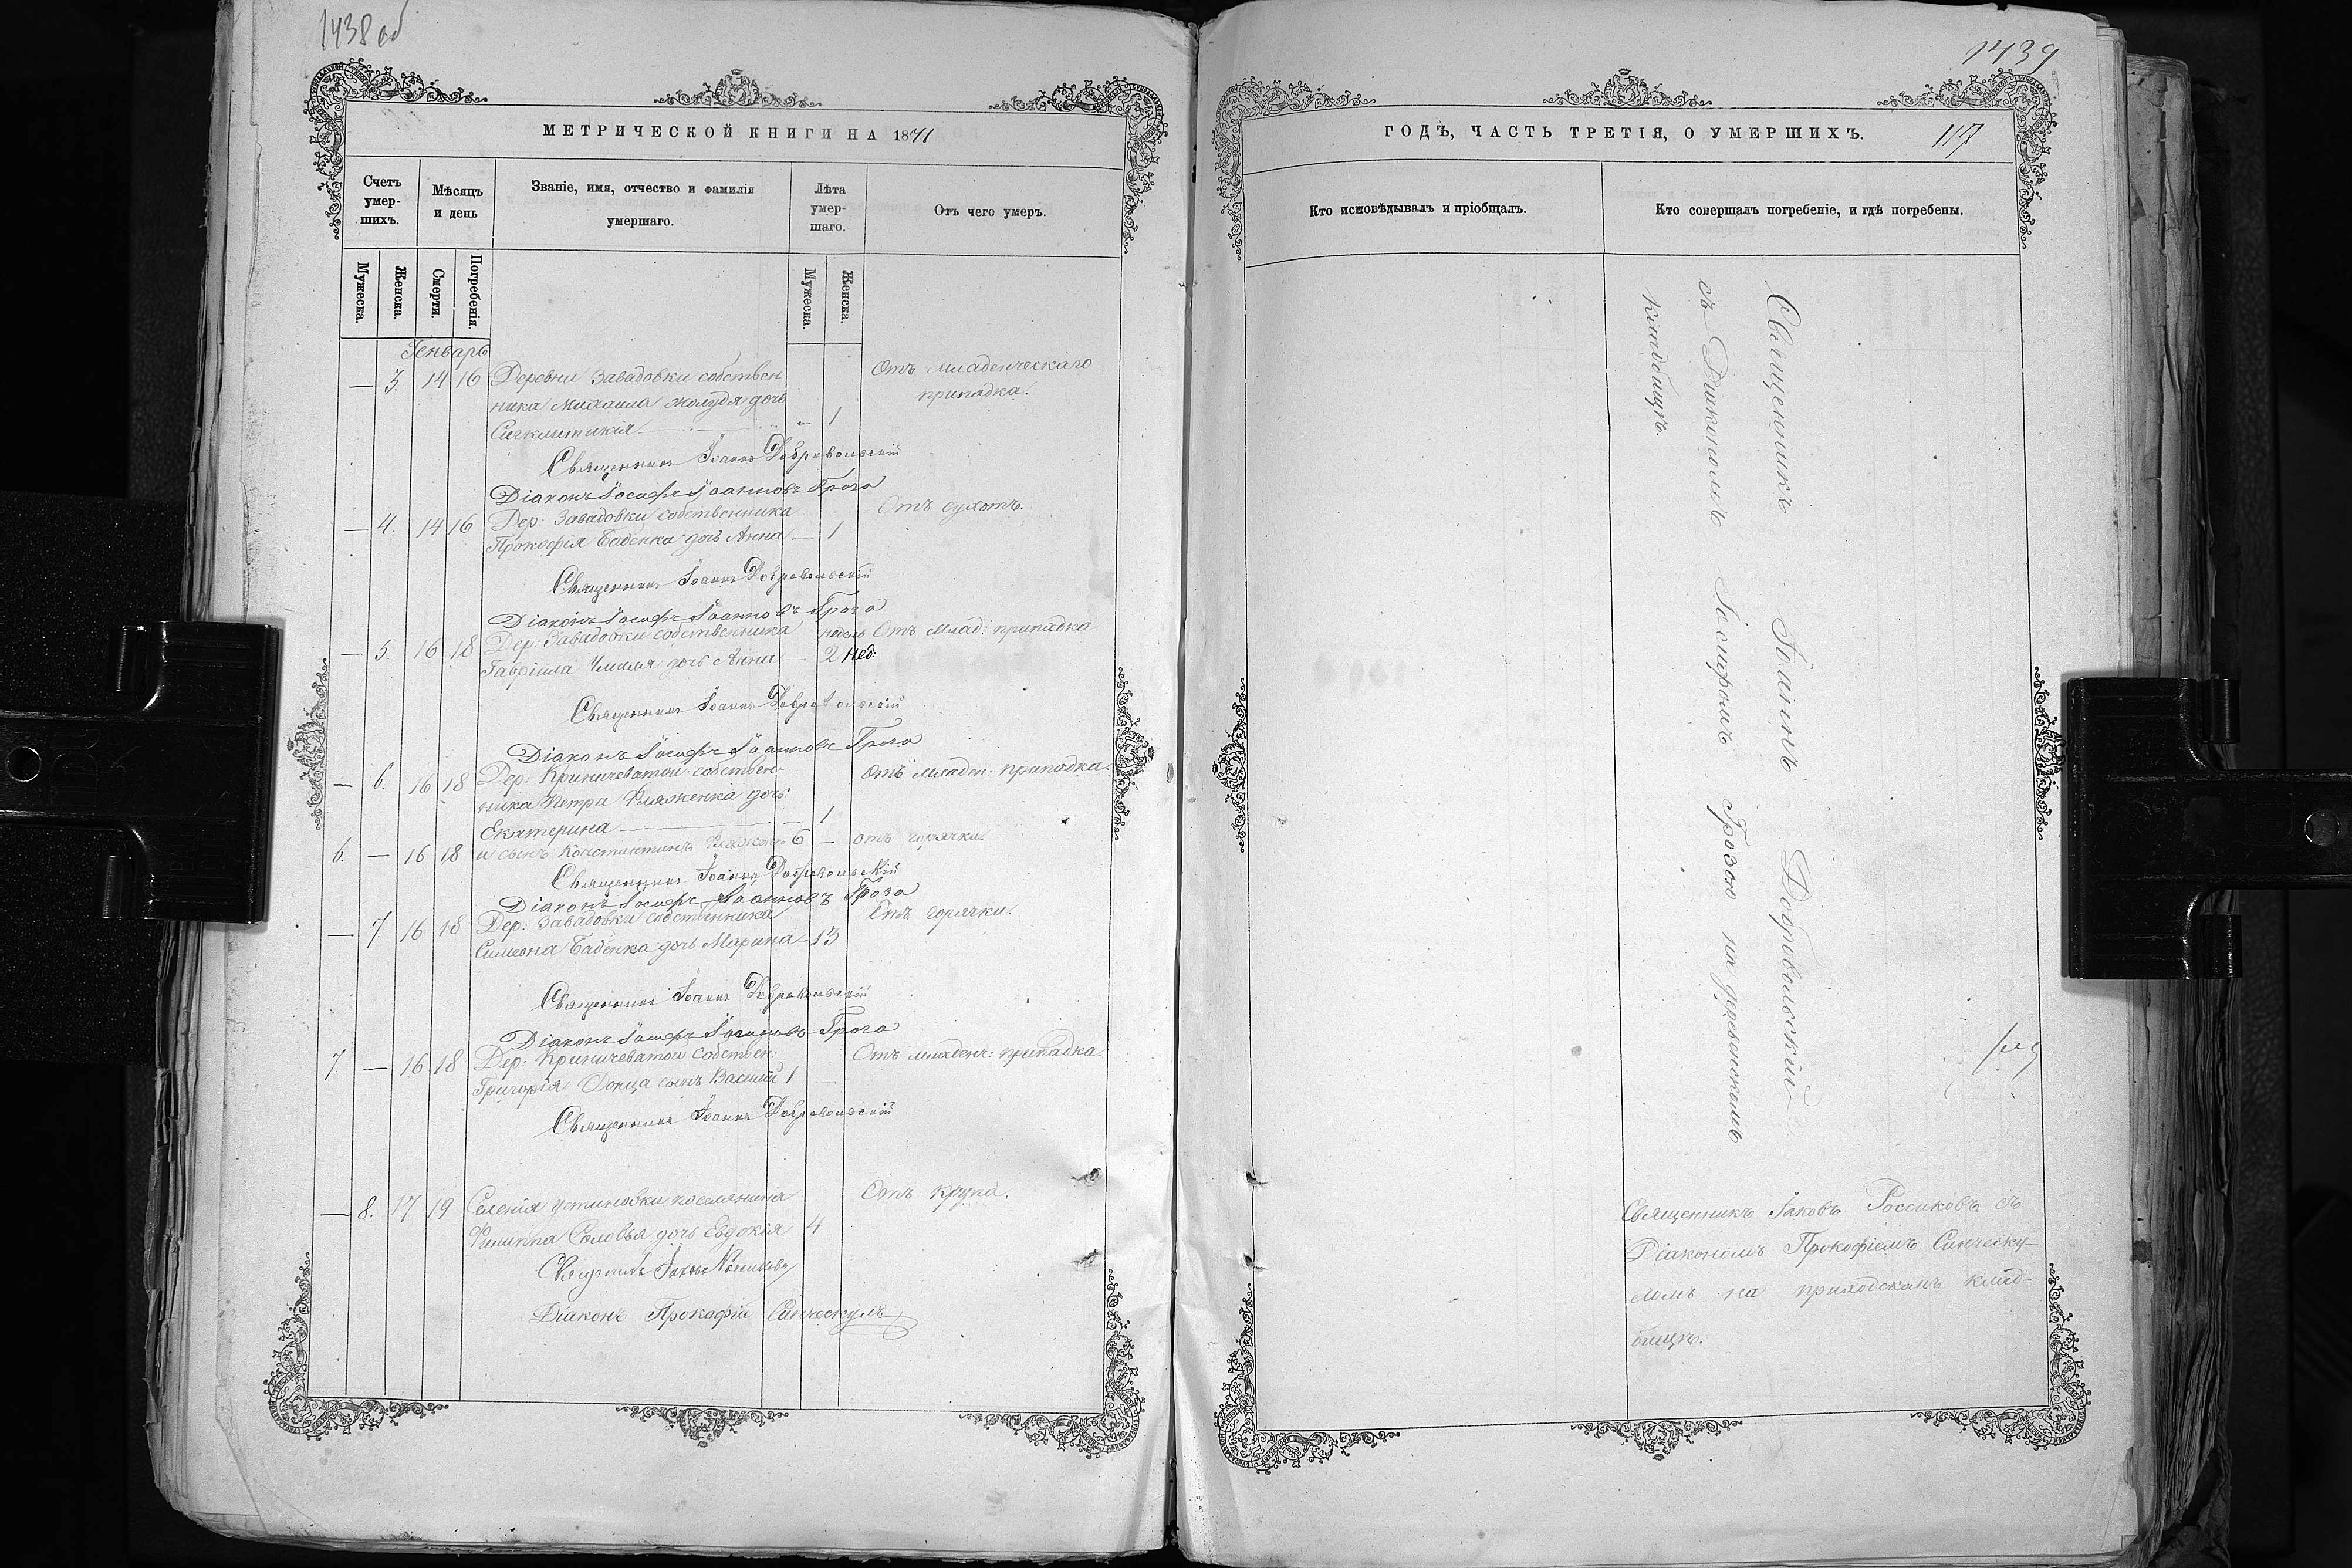 1438 об
МЕТРИЧЕСКОЙ КНИГИ НА 1871
Счетъ умер-шихъ.
Мѣсяцъ и день
Званіе, имя, отчество и фамилія умершаго.
Лѣта умер-шаго.
Отъ чего умеръ.
Мужеска.
Женска.
Смерти.
Погребенія.
Мужеска.
Женска.
Генварь
— 3. 14 16 Деревни Завадовки собствен Отъ младенческаго
ника Михаила Жолудя дочь припадка.
Сигклитикія — 1
Священникъ Іоаннъ Добровольскій
Діаконъ Іосифъ Іоанновъ Гроза
— 4. 14 16 Дер: Завадовки собственника Отъ сухотъ.
Прокофія Бабенка дочь Анна — 1
Священникъ Іоаннъ Добровольскій
Діаконъ Іосифъ Іоанновъ Гроза
— 5. 16 18 Дер: Завадовки собственника недель Отъ млад: припадка
Гавріила дочь Анна — 2 нед:
Священникъ Іоаннъ Добровольскій
Діаконъ Іосифъ Іоанновъ Гроза
— 6. 16 18 Дер: Криничеватой собствен- Отъ младен: припадка.
ника Петра дочь:
Екатерина — 1
6. — 16 18 и сынъ Константинъ 6 — отъ горячки.
Священникъ Іоаннъ Добровольскій
Діаконъ Іосифъ Іоанновъ Гроза
— 7. 16 18 Дер: Завадовки собственника Отъ горячки.
Симеона Бабенка дочь Марина — 13
Священникъ Іоаннъ Добровольскій
Діаконъ Іосифъ Іоанновъ Гроза
7. — 16 18 Дер: Криничеватой собствен: Отъ младенч: припадка
Григорія Донца сынъ Василій 1 —
Священникъ Іоаннъ Добровольскій
— 8. 17 19 Селенія Устиновки поселянина Отъ крупа.
Филиппа Соловья дочь Евдокія 4
Священникъ Іаковъ Россиковъ
Діаконъ Прокофій Синческулъ
1439
ГОДЪ, ЧАСТЬ ТРЕТІЯ, О УМЕРШИХЪ.
117
Кто исповѣдывалъ и пріобщалъ.
Кто совершалъ погребеніе, и гдѣ погребены.
Священникъ Іоаннъ Добровольскій
съ Діакономъ Іосифомъ Грозою на деревенскомъ
кладбищѣ.
Священникъ Іаковъ Россиковъ съ
Діакономъ Прокофіемъ Синческу-
ломъ на приходскомъ клад-
бищѣ.